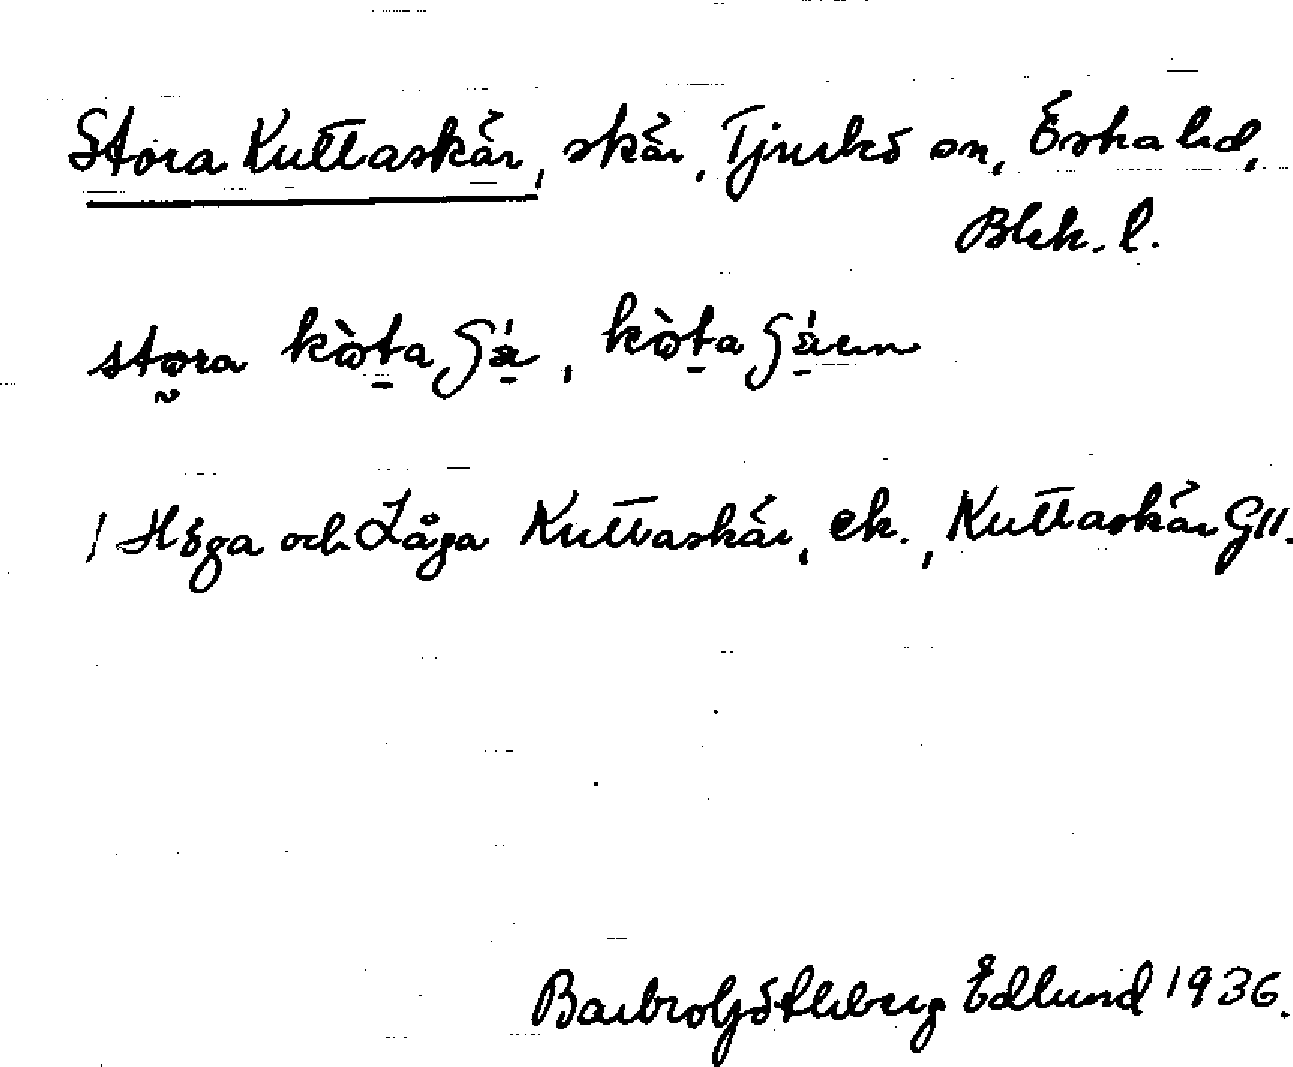 Stora Kuttaskär, skär, Tjurkö sn, Östra hd,
Blek. l.
stora
/ Höga och Låga Kuttaskär, ek., Kuttaskär Gll.
Barbro Götleberg Edlund 1936.